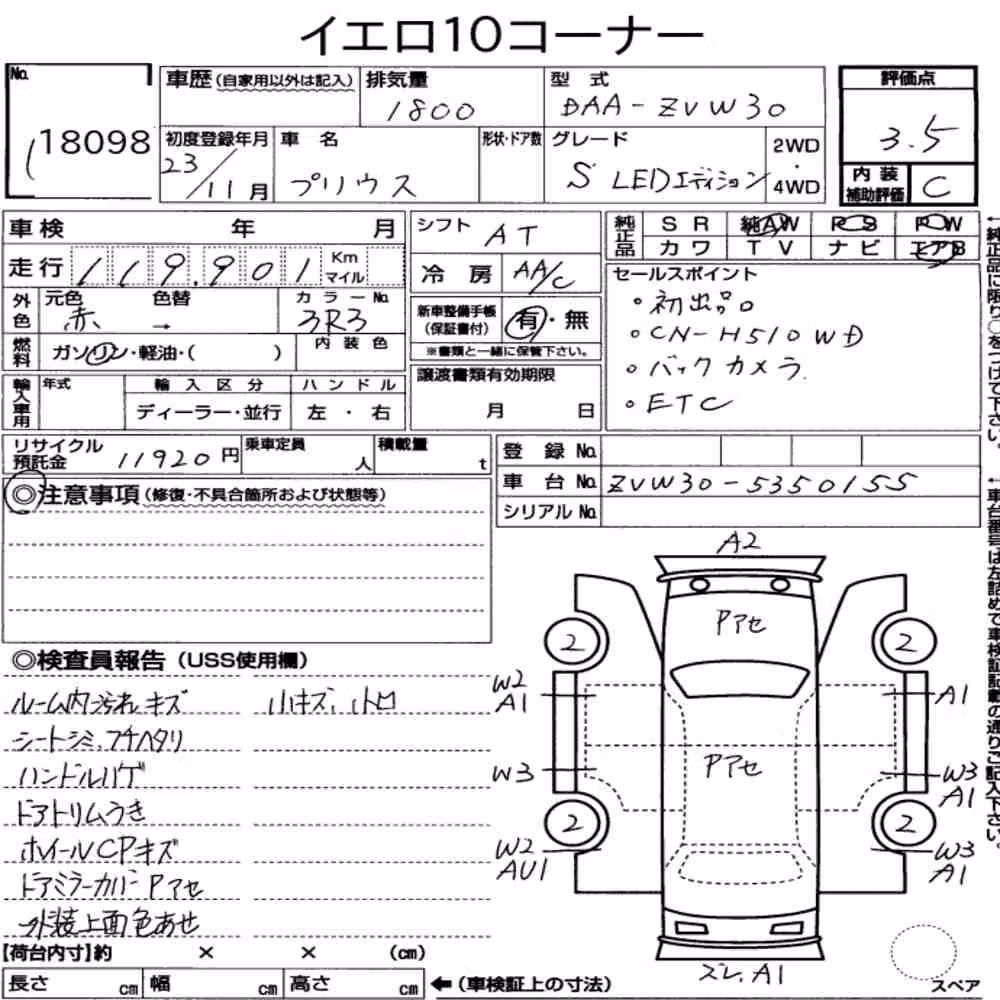 イエロ10コーナー
No.
18098
車歴(自家用以外は記入)
排気量
1800
型 式
DAA-ZVW30
評価点
3.5
初度登録年月
23/11月
車 名
プリウス
形状・ドア数
グレード
S LEDエディション
2WD
・
4WD
内 装
補助評価
C
車 検 年 月
シフト AT
純正品
S R 純AW P S P W
カワ T V ナビ エアB
走 行 119,901 Km
マイル
冷 房 AA/C
外色
元色 色替 カラーNo.
赤 → 3R3
新車整備手帳
(保証書付)
有・無
※書類と一緒に保管下さい。
セールスポイント
・初出品。
・CN-H510WD
・バックカメラ
・ETC
燃料
ガソリン・軽油・( )
内 装 色
輸入車用
年式
輸 入 区 分
ハ ン ド ル
ディーラー・並行
左 ・ 右
譲渡書類有効期限
月 日
リサイクル
預託金 11920円
乗車定員
人
積載量
t
登 録 No.
車 台 No. ZVW30-5350155
シリアル No.
←純正品に限り○をつけて下さい。
←車台番号は左詰めで車検証記載の通りご記入下さい。
◎注意事項(修復・不具合箇所および状態等)
◎検査員報告(USS使用欄)
ルーム内汚れキズ
小キズ、小凹
シートシミ、フチヘタリ
ハンドルハゲ
ドアトリムうき
ホイールCPキズ
ドアミラーカバーPアセ
外装上面色あせ
A2
Pアセ
2
2
W2
A1
A1
W3
Pアセ
W3
A1
2
2
W2
AU1
W3
A1
ズレ、A1
【荷台内寸】約 × × (cm)
長さ cm 幅 cm 高さ cm ←(車検証上の寸法)
スペア